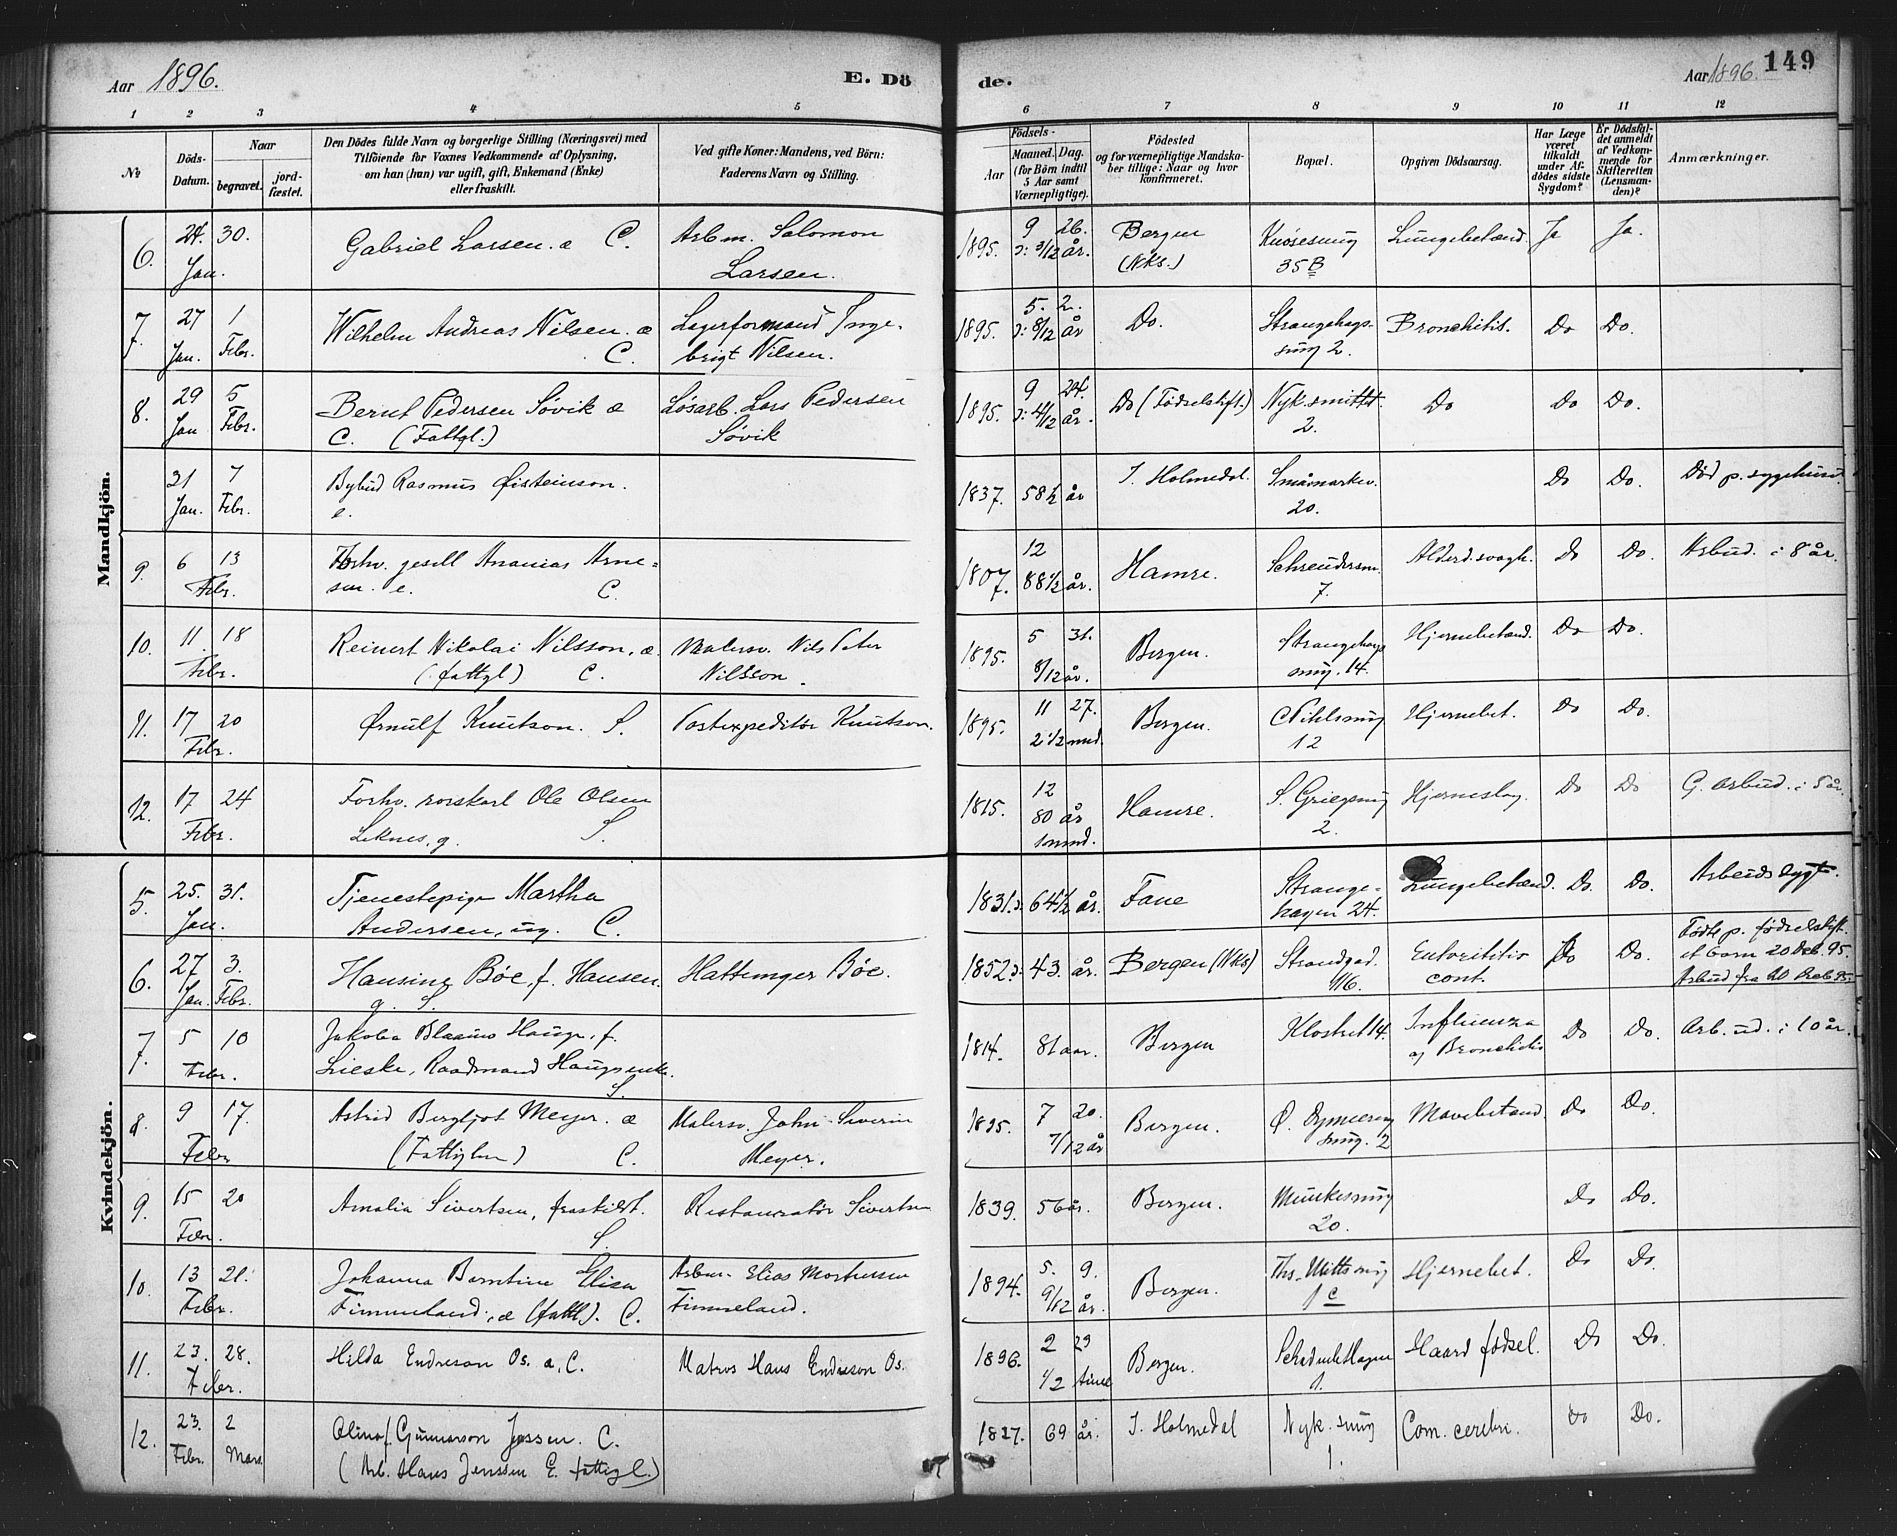 Aar 1896.
E. Dö
de.
Aar 1896. 149
1 2 3 4 5 6 7 8 9 10 11 12
No
Döds-Datum.
Naar
begravet.
jord-fæstet.
Den Dödes fulde Navn og borgerlige Stilling (Næringsvei) med
Tilföiende for Voxnes Vedkommende af Oplysning,
om han (hun) var ugift, gift, Enkemand (Enke)
eller fraskilt.
Ved gifte Koner: Mandens, ved Börn:
Faderens Navn og Stilling.
Födsels-
Aar
Maaned. Dag.
(for Börn indtil
5 Aar samt
Værnepligtige).
Födested
og for værnepligtige Mandska-
ber tillige: Naar og hvor
konfirmeret.
Bopæl.
Opgiven Dödsaarsag.
Har Læge
været
tilkaldt
under Af-
dödes sidste
Sygdom?
Er Dödsfal-
det anmeldt
af Vedkom-
mende for
Skifteretten
(Lensman-
den)?
Anmærkninger.
Mandkjön.
6. 24. Jan. 30. Gabriel Larsen. æ C. Arbm. Salomon Larsen. 1895. 9 26. ɔ: 3/12 år. Bergen (Nks.) Knøsesmug 35 B Lungebetænd. Ja Ja.
7. 27 Jan. 1 Febr. Wilhelm Andreas Nilsen. æ C. Lagerformand Ingebrigt Nilsen. 1895. 5. 2. ɔ: 8/12 år Do. Strangehagssmug 2. Bronchitis. Do Do.
8. 29 Jan 5 Febr. Bernt Pedersen Søvik æ C. (Fattgl.) Løsarb. Lars Pedersen Søvik 1895. 9 24. ɔ: 4/12 år. Do (Fødselstift.) Nyk.smitt. 2. Do Do Do.
31 Jan. 7 Febr. Bybud Rasmus Øisteinson. e. 1837. 58½ år I. Holmedal. Småmarkev. 20. Do Do. Død p. sygehuset.
9. 6 Febr. 13 Forhv. gesell Ananias Arnesen. e. C. 1807. 12 88½ år. Hamre. Schreudersm. 7. Alderd.svagh. Do Do. Arbud. i 8 år.
10. 11. Febr. 18 Reinert Nikolai Nilsson, æ. (fattgl) C. Malersv. Nils Peter Nilsson. 1895. 5 31. 8/12 år. Bergen. Strangehagssmug. 14. Hjernebetænd. Do Do.
11. 17 Febr. 20 Ørnulf Knutson. S. Postexpeditør Knutson. 1895. 11 27. 2½ mnd. Bergen. C Pihlsmug 12 Hjernebet. Do Do.
12. 17 Febr. 24 Forhv. rorskarl Ole Olsen Leknes, g. S. 1815. 12 80 år 1 mnd. Hamre. S. Griegsmug 2. Hjerneslag. Do Do G. arbud. i 5 år.
Kvindekjön.
5. 25. Jan. 31. Tjenestepige Martha Andersen, ug. C. 1831. ɔ: 64½ år. Fane Strangehagen 24. Lungebetænd. Do. Do. Arbeids dygt.
6. 27 Jan. 3. Febr. Hansine Bøe, f. Hansen. g. S. Hattemager Bøe. 1852 ɔ: 43. år. Bergen (Nks) Strandgad. 116. Entoritis cont. Do Do. Fødte p. fødselstift. et barn 20 Dec. 95. Arbud fra 20 Decb 95.
7. 5 Febr. 10 Jakoba Blaauw Hauge, f. Lieske, Raadmand Hauges enke. S. 1814. 81 aar. Bergen Klostret 14. Influenza og Bronchitis Do Do. Arb. ud. i 10 år.
8. 9 Febr 17. Astrid Bergljot Meyer. æ (Fattiglm) C. Malersv. John Severin Meyer. 1895. 7 20. 7/12 år Bergen. Ø. smug. 2 Mavebetænd. Do Do.
9. 15 Febr. 20 Amalia Sivertsen, fraskilt. S. Restauratør Sivertsen 1839. 56 år. Bergen. Munkesmug 20. Do Do.
10. 13 Febr. 21. Johanna Berntine Elisa Fimmeland, æ (fattl). C. Arbm. Elias Mortensen Fimmeland. 1894. 5. 9. 9/12 år. Bergen. Ths. Wittsmug 1 c Hjernebet. Do Do.
11. 23. Febr. 28. Hilda Endreson Os. æ, C. Matros Hans Endreson Os. 1896. 2 23 1/2 time Bergen. 1. Haard fødsel. Do Do.
12. 23. Febr. 2 Mars Olina f. Gunnarson Jensen. C. (Arb. Hans Jenssen E. fattigl.) 1827. 69 år. I. Holmedal Nyk. smug 1. Com. cerebri. Do Do.